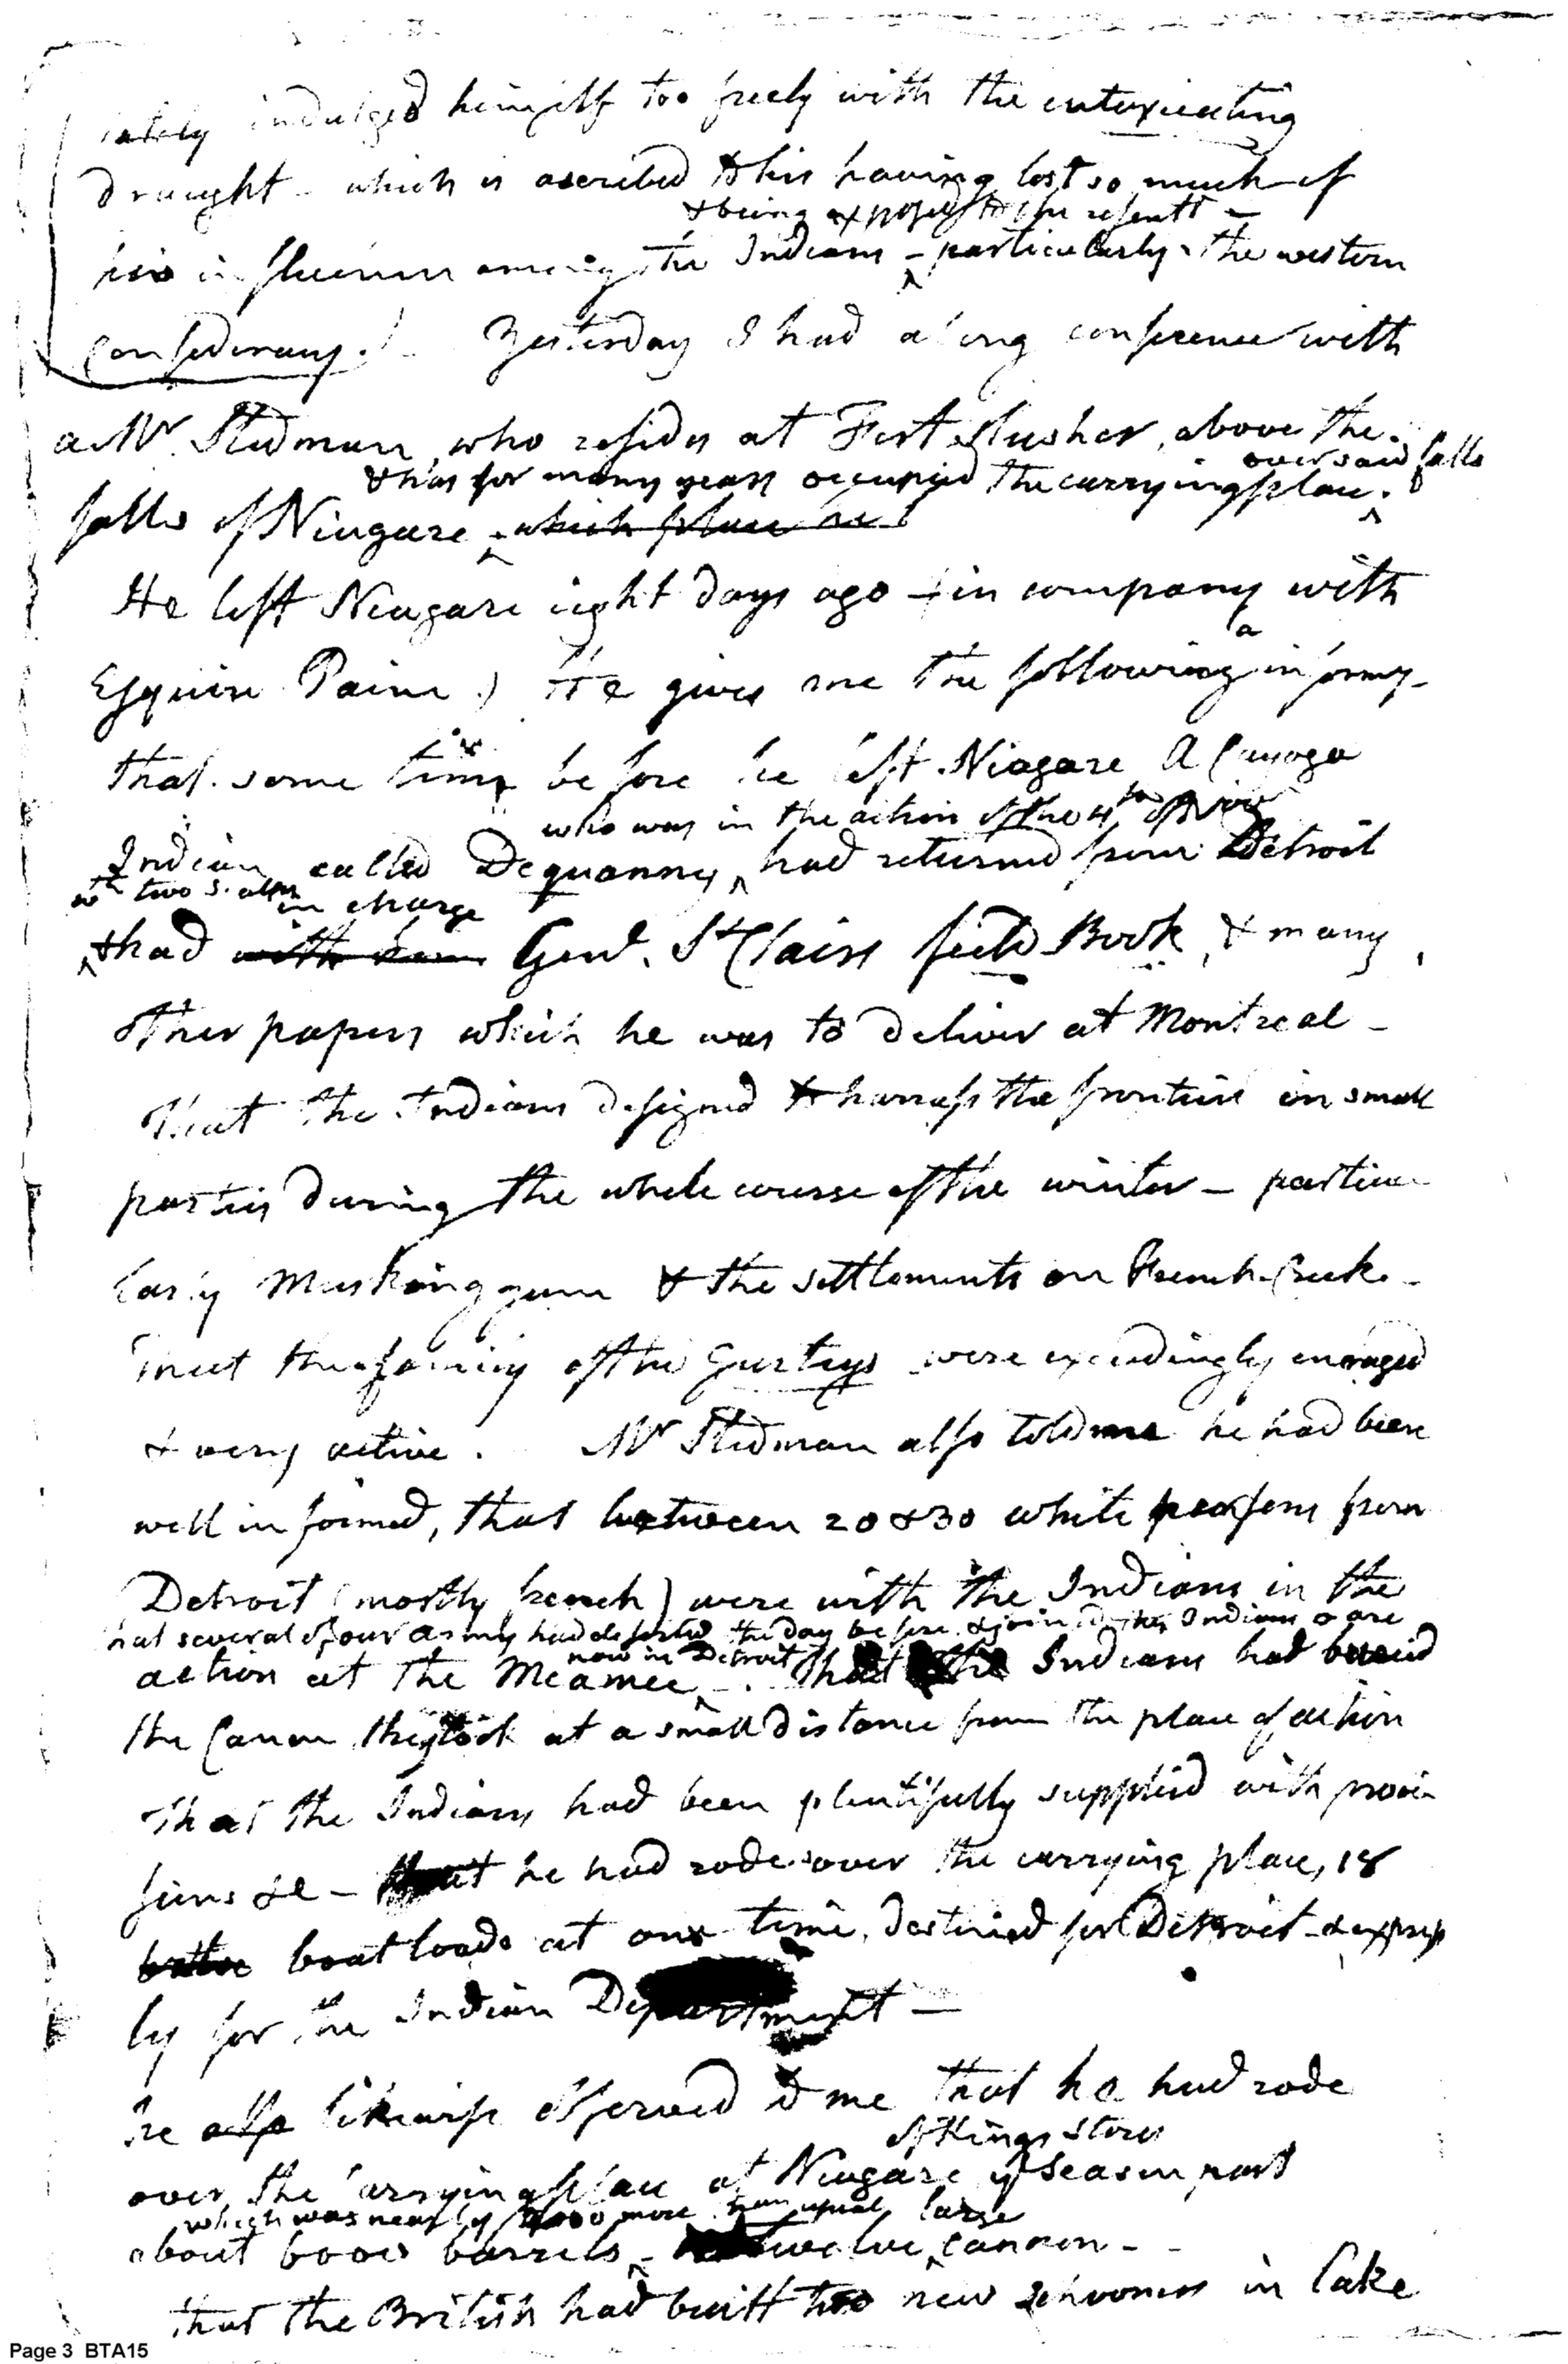 lately indulged himself too freely with the intoxicating
draught - which is ascribed to his having lost so much of
& being exposed to the resentt -
his influence among the Indians - particularly the western
confederacy.) Yesterday I had a long conference with
a Mr Stedman, who resides at Fort Slusher, above the
& has for many years occupied the carrying place over said falls
falls of Niagare - which place he
He left Niagare eight days ago - (in company with
Esquire Paine.) He gives me the following informa-
that some time before he left Niagare, A Cayoga
who was in the action of the 4th of Novr
Indian called Dequanny, had returned from Detroit
wth two scalps
in charge
& had with him Genl. St Clairs field Book, & many
other papers which he was to deliver at Montreal -
That the Indians designed to harrass the frontiers in small
parties during the whole course of the winter - particu
larly Muskinggum & the settlements on French Creek -
that the family of the Gurteys were exceedingly enraged
& very active. Mr Stedman also told me he had been
well informed, that between 20 & 30 white persons from
Detroit (mostly french) were with the Indians in the
hat several of our army had deserted the day before & joined the Indians & are
now in Detroit
action at the Meamee - . That the Indians had buried
the Canon they took at a small distance from the place of action
That the Indians had been plentifully supplied with provi
sions &c - that he had rode over the carrying place, 18
boat loads at one time, destined for Detroit - & express
ly for the Indian Department -
he also likewise observed to me that he had rode
of Kings stores
over the carrying place at Niagare ys season past
which was nearly more than usual large
about 6000 barrels - twelve cannon -
that the British had built two new schooners in Lake
Page 3 BTA15